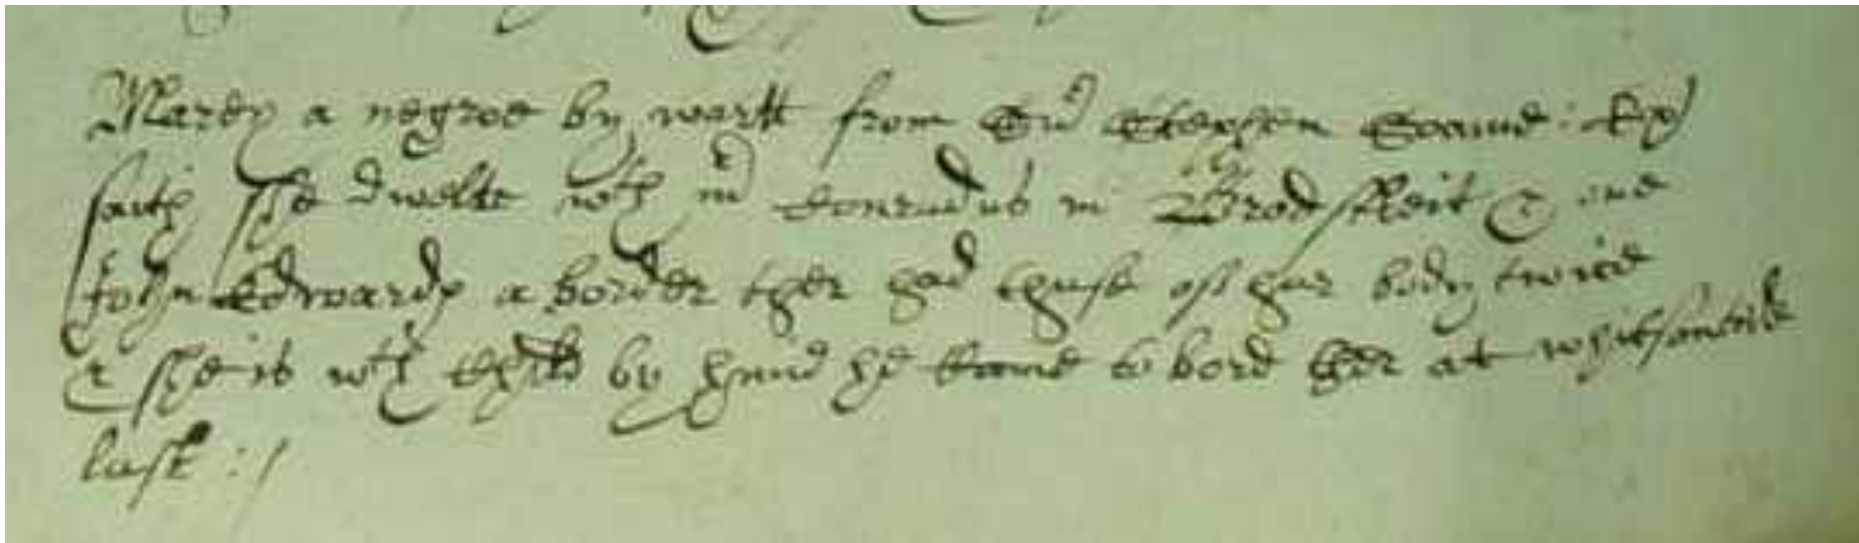 Marey a negroe by warrt from Sr Stephen Soame: &
saith she dwelte wth mr Conradus in Brodstreit & one
John Edwards a border ther had thuse off hur body twice
& she is wth child by hime he Came to bord ther at whitsontide
last :/